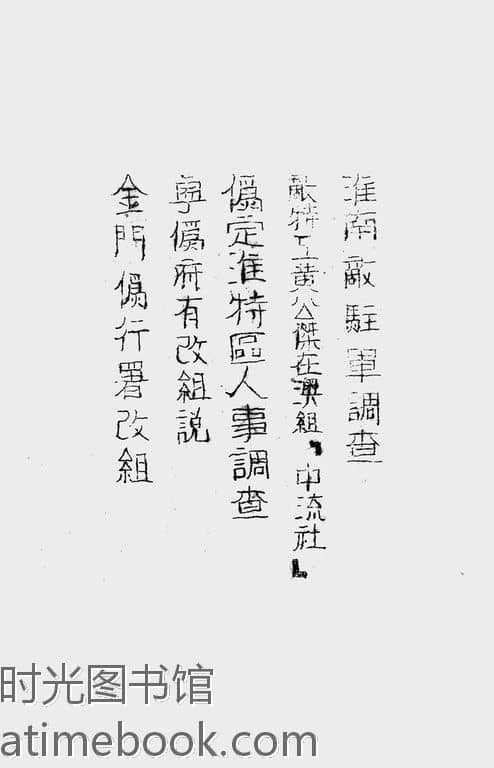 淮南敵駐軍調查
敵特工黃公傑在澳組「中流社」
僞定淮特區人事調查
寧僞府有改組説
金門僞行署改組
时光图书馆
atimebook.com